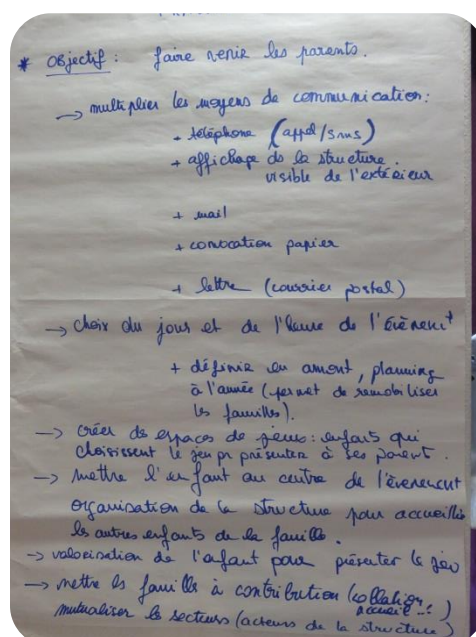 * Objectif : faire venir les parents.
→ multiplier les moyens de communication :
+ téléphone (appel/sms)
+ affichage ds la structure.
visible de l'extérieur
+ mail
+ convocation papier
+ lettre (courrier postal)
→ choix du jour et de l'heure de l'évènemt
+ définir en amont, planning
à l'année (permet de remobiliser
les familles).
→ créer des espaces de jeux : enfants qui
choisissent le jeu pr présenter à ses parent.
→ mettre l'enfant au centre de l'évenement
organisation de la structure pour accueillir
les autres enfants de la famille.
→ valorisation de l'enfant pour présenter le jeu
→ mettre les familles à contribution (collation
accueil ..)
mutualiser les secteurs (acteurs de la structure)